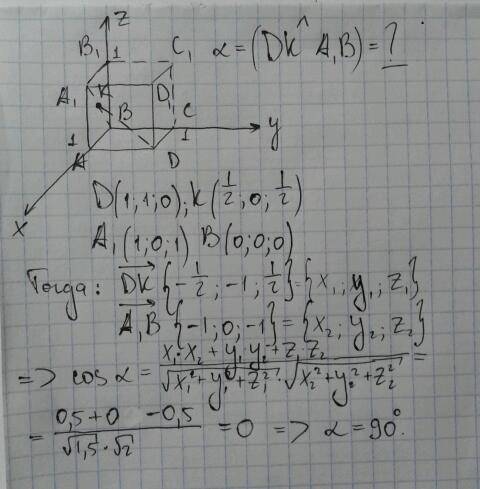 Z
B₁ 1 C₁ α = (DK ^ A₁B) = ?
A₁ K D₁
B C
1 1 y
A D
X
D(1;1;0); K(1/2; 0; 1/2)
A₁(1;0;1) B(0;0;0)
Тогда: DK {-1/2; -1; 1/2} = {x₁; y₁; z₁}
A₁B {-1; 0; -1} = {x₂; y₂; z₂}
=> cos α = (x₁·x₂ + y₁·y₂ + z₁·z₂) / (√(x₁² + y₁² + z₁²) · √(x₂² + y₂² + z₂²)) =
= (0,5 + 0 - 0,5) / (√1,5 · √2) = 0 => α = 90°.